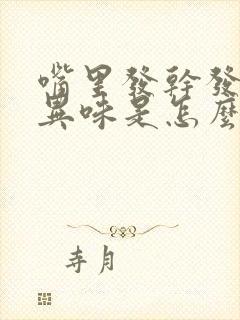 嘴里發幹發
異味是怎麼
寺月